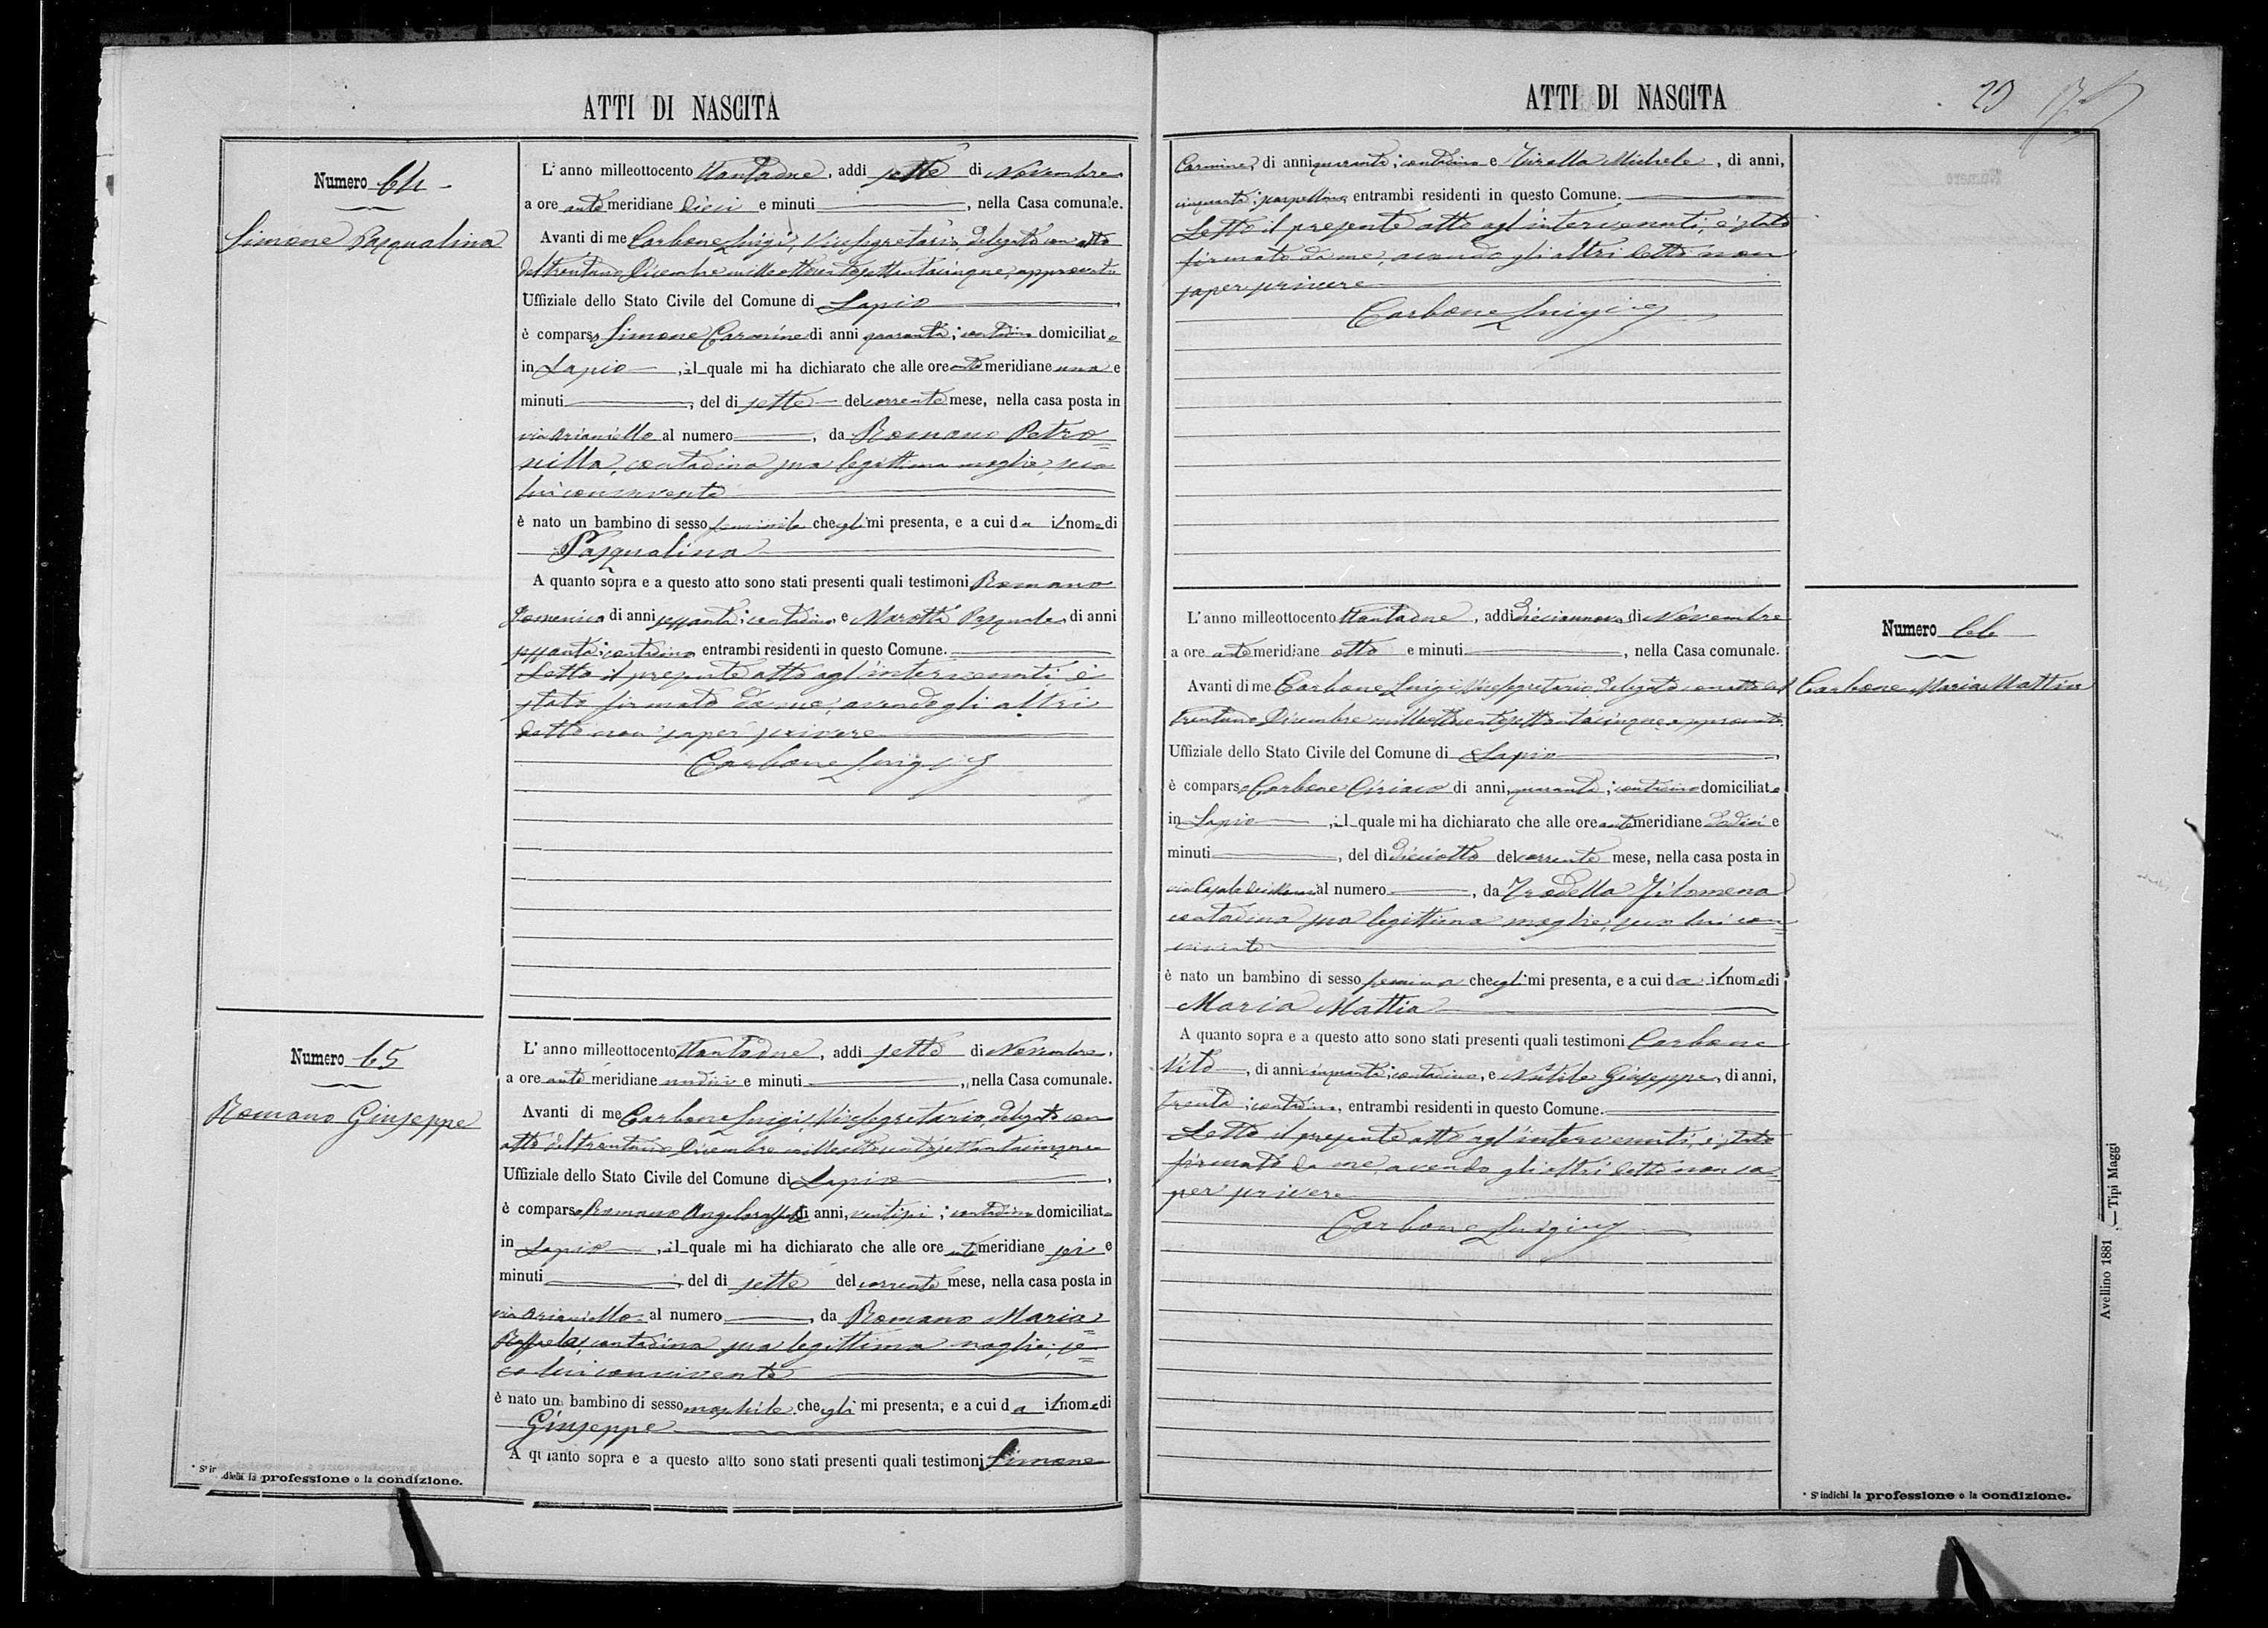 ATTI DI NASCITA
Numero 64
Simone Pasqualina
L'anno milleottocento ottantadue, addi sette di Novembre
a ore ante meridiane dieci e minuti, nella Casa comunale.
Avanti di me Carbone Luigi, Vicesegretario, delegato con atto
del trentuno Dicembre milleottocentosettantacinque, approvato
Uffiziale dello Stato Civile del Comune di Lapio
è comparso Simone Carmine di anni quaranta; contadino domiciliato
in Lapio, il quale mi ha dichiarato che alle ore ante meridiane una e
minuti, del di sette del corrente mese, nella casa posta in
via Arianiello al numero, da Romano Petro=
nilla, contadina sua legittima moglie, seco
lui convivente
è nato un bambino di sesso che egli mi presenta, e a cui da il nome di
Pasqualina
A quanto sopra e a questo atto sono stati presenti quali testimoni Romano
Domenico di anni sessanta; contadino e Marotta Pasquale, di anni
sessanta; contadino entrambi residenti in questo Comune.
Letto il presente atto agl'intervenuti è
stato firmato da me, avendo gli altri
detto non saper scrivere
Carbone Luigi
Numero 65
Romano Giuseppe
L'anno milleottocento ottantadue, addi sette di Novembre,
a ore ante meridiane undici e minuti, nella Casa comunale.
Avanti di me Carbone Luigi, Vicesegretario, delegato con
atto del trentuno Dicembre milleottocentosettantacinque
Uffiziale dello Stato Civile del Comune di Lapio,
è comparso Romano Angeloraffaele di anni, ventisei; contadino domiciliato
in Lapio, il quale mi ha dichiarato che alle ore ante meridiane sei e
minuti, del di sette del corrente mese, nella casa posta in
via Arianiello al numero, da Romano Maria=
Raffaela, contadina sua legittima moglie, se=
co lui convivente
è nato un bambino di sesso maschile che egli mi presenta, e a cui da il nome di
Giuseppe
A quanto sopra e a questo atto sono stati presenti quali testimoni Simone
* S'indichi la professione o la condizione.
ATTI DI NASCITA
Carmine, di anni quaranta; contadino e Michele, di anni,
cinquanta; scarpellino, entrambi residenti in questo Comune.
Letto il presente atto agl'intervenuti, è stato
firmato da me, avendo gli altri detto non
saper scrivere
Carbone Luigi
Numero 66
Carbone Maria Mattia
L'anno milleottocento ottantadue, addi diciannove di Novembre
a ore ante meridiane otto e minuti, nella Casa comunale.
Avanti di me Carbone Luigi Vicesegretario, delegato con atto del
trentuno Dicembre milleottocentosettantacinque approvato
Uffiziale dello Stato Civile del Comune di Lapio,
è comparso Carbone Ciriaco di anni, quaranta; contadino domiciliato
in Lapio, il quale mi ha dichiarato che alle ore ante meridiane dodici e
minuti, del di diciotto del corrente mese, nella casa posta in
via Casale al numero, da Trodella Filomena
contadina sua legittima moglie, seco lui con=
vivente
è nato un bambino di sesso che egli mi presenta, e a cui da il nome di
Maria Mattia
A quanto sopra e a questo atto sono stati presenti quali testimoni Carbone
Vito, di anni cinquanta; contadino, e Giuseppe, di anni,
trenta; contadino, entrambi residenti in questo Comune.
Letto il presente atto agl'intervenuti, è stato
firmato da me, avendo gli altri detto non sa=
per scrivere
Carbone Luigi
* S'indichi la professione o la condizione.
Avellino 1881 — Tipi Maggi